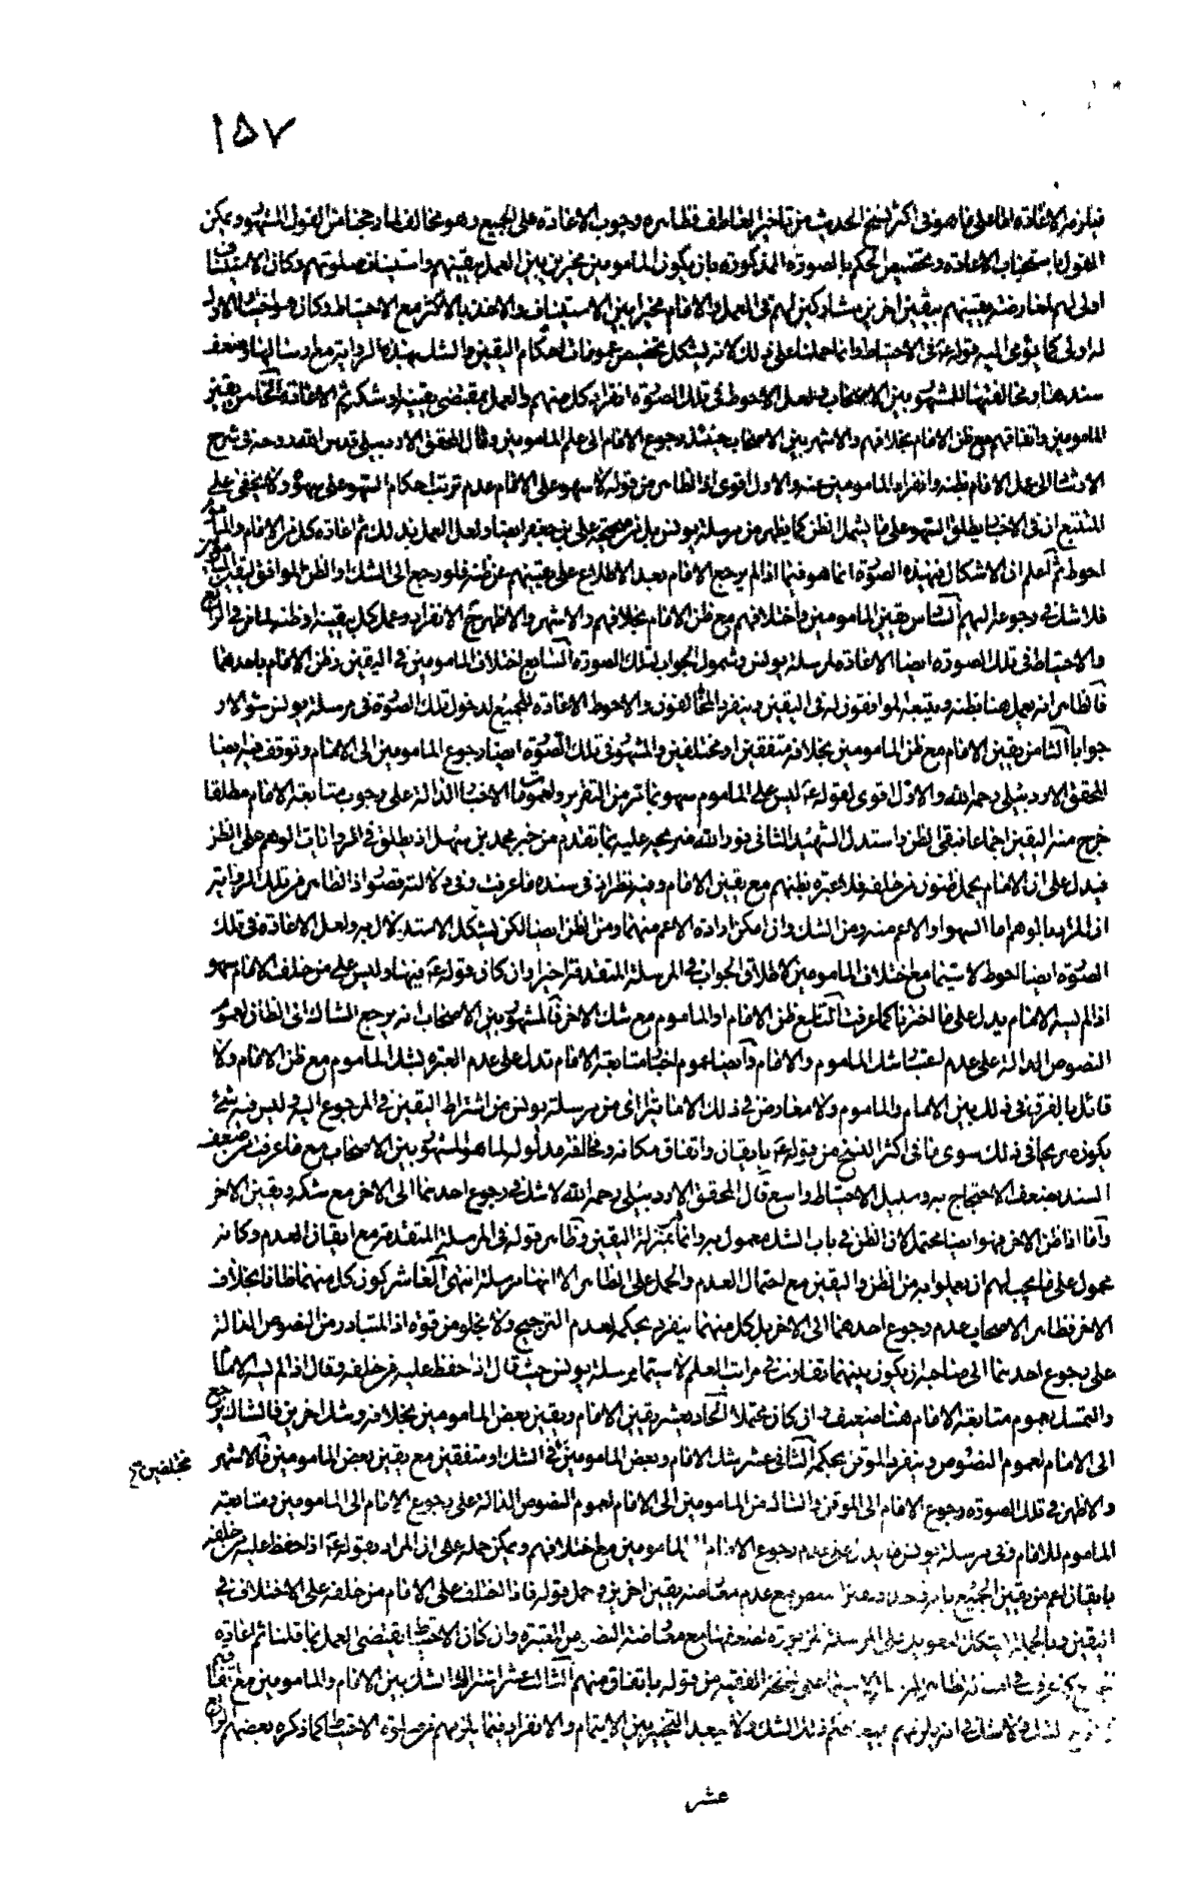 ١٥٧
فيلزمه الاعادة اما على ما هو فى اكثر نسخ الحديث من تاخير العاطف فظاهره وجوب الاعادة على الجميع وهو مخالف لما رجحنا من القول المشهور ويمكن
القول باستحباب الاعادة وتخصيص الحكم بالصورة المذكورة بان يكون المامومين مخيرين بين العمل بيقينهم واستيناف صلوتهم وكان الاستيناف
اولى لهم لمعارضة يقينهم بيقين اخرين مشاركين لهم فى العمل والامام مخيرا بين الاستيناف والاخذ بالاكثر مع الاحتياط وكان هو اختيار الاول
له اولى كما يؤمى اليه قوله ع فى الاحتياط وانما حملنا على ذلك لانه يشكل تخصيص عمومات احكام اليقين والشك بهذه الرواية مع ارسالها وضعف
سندها ومخالفتها للمشهور بين الاصحاب ولعل الاحوط فى تلك الصورة انفراد كل منهم والعمل بمقتضى يقينه او شكه ثم الاعادة الخامس يقين
المامومين واتفاقهم مع ظن الامام بخلافهم والاشهر بين الاصحاب حينئذ رجوع الامام الى علم المامومين وقال المحقق الاردبيلى قدس الله روحه فى شرح
الارشاد الى عمل الامام بظنه وانفراد المامومين عنه والاول اقوى اذ الظاهر من قوله لا سهو على الامام عدم ترتب احكام السهو على سهوه ولا يخفى على
المتتبع ان فى الاخبار يطلق السهو على ما يشمل الظن كما يظهر من مرسلة يونس بل من صحيحة على بن جعفر ايضا ولعل العمل بذلك ثم اعادة كل من الامام والماموم
احوط ثم اعلم ان الاشكال فى هذه الصورة انما هو فيما اذا لم يرجع الامام بعد الاطلاع على يقينهم عن ظنه فلو رجع الى الشك او الظن الموافق ليقين المامومين
فلا شك فى رجوعه اليهم السادس يقين المامومين واختلافهم مع ظن الامام بخلافهم والاشهر والاظهر ح الانفراد وعمل كل بيقينه او ظنه لما مر فى الرابع
والاحتياط فى تلك الصورة ايضا الاعادة لمرسلة يونس وشمول الجواب لتلك الصورة السابع اختلاف المامومين فى اليقين وظن الامام باحدهما
فالظاهر انه يعمل هنا بظنه ويتبعه الموافقون له فى اليقين وينفرد المخالفون والاحوط الاعادة للجميع لدخول تلك الصورة فى مرسلة يونس سؤالا و
جوابا الثامن يقين الامام مع ظن المامومين بخلافه متفقين او مختلفين والمشهور فى تلك الصورة ايضا رجوع المامومين الى الامام وتوقف فيه ايضا
المحقق الاردبيلى رحمه الله والاول اقوى لقوله ع ليس على الماموم سهو بما مر من التقرير ولعمومات الاخبار الدالة على وجوب متابعة الامام مطلقا
خرج منه اليقين اجماعا فبقى الظن واستدل الشهيد الثانى نور الله ضريحه عليه بما تقدم من خبر محمد بن سهل اذ يطلق فى الروايات الوهم على الظن
فيدل على ان الامام يحمل ظنون من خلفه فلا عبرة بظنهم مع يقين الامام وفيه نظر اذ فى سنده ما عرفت وفى دلالته قصور اذ الظاهر من تلك الرواية
ان المراد بالوهم اما السهو او الاعم منه ومن الشك وان امكن ارادة الاعم منهما ومن الظن ايضا لكن يشكل الاستدلال به ولعل الاعادة فى تلك
الصورة ايضا احوط لا سيما مع اختلاف المامومين لاطلاق الجواب فى المرسلة المتقدمة اخيرا وان كان قوله ع فيها وليس على من خلف الامام سهو
اذا لم يسه الامام يدل على ما اخترنا كما عرفت التاسع ظن الامام او الماموم مع شك الاخر فالمشهور بين الاصحاب انه يرجع الشاك الى الظان لعموم
النصوص الدالة على عدم اعتبار شك الماموم والامام وايضا عموم اخبار متابعة الامام تدل على عدم العبرة لشك الماموم مع ظن الامام ولا
قائل بالفرق فى ذلك بين الامام والماموم ولا معارض فى ذلك الا ما يتراءى من مرسلة يونس من اشتراط اليقين فى المرجوع اليه وليس فيه شئ
يكون صريحا فى ذلك سوى ما فى اكثر النسخ من قوله ع بايقان واتفاق مكانه ومخالفة مدلولها لما هو المشهور بين الاصحاب مع ما عرفت من ضعف
السند يضعف الاحتجاج به وسبيل الاحتياط واسع قال المحقق الاردبيلى رحمه الله لا شك فى رجوع احدهما الى الاخر مع شكه ويقين الاخر
واما اذا ظن الاخر فهو ايضا محتمل لان الظن فى باب الشك معمول به وانه بمنزلة اليقين وظاهر قوله فى المرسلة المتقدمة مع ايقان العدم وكانه
محمول على ما يجب لهم ان يعملوا به من الظن واليقين مع احتمال العدم والحمل على الظاهر الا انها مرسلة انتهى العاشر كون كل منهما ظانا بخلاف
الاخر فظاهر الاصحاب عدم رجوع احدهما الى الاخر بل كل منهما ينفرد بحكمه لعدم الترجيح ولا يخلو من قوة اذ المتبادر من النصوص الدالة
على رجوع احدهما الى صاحبه ان يكون بينهما تفاوت فى مراتب العلم لا سيما مرسلة يونس حيث قال اذا حفظ عليه من خلفه وقال اذا لم يسه الامام
والتمسك بعموم متابعة الامام هنا ضعيف وان كان محتملا الحادى عشر يقين الامام ويقين بعض المامومين بخلافه وشك اخرين فالشاك يرجع
الى الامام لعموم النصوص وينفرد الموقن بحكمه الثانى عشر شك الامام وبعض المامومين مختلفين فى الشك او متفقين مع يقين بعض المامومين فالاشهر
والاظهر فى تلك الصورة رجوع الامام الى الموقن والشاك من المامومين الى الامام لعموم النصوص الدالة على رجوع الامام الى المامومين ومتابعة
الماموم للامام وفى مرسلة يونس ما يدل على عدم رجوع الامام الى المامومين مع اختلافهم ويمكن حمله على ان المراد بقوله ع اذا حفظ عليه من خلفه
بايقان اعم من يقين الجميع مع عدم معارضة يقين اخرين وحمل قوله فاذا اختلف على الامام من خلفه على الاختلاف فى
اليقين وبالجملة يشكل التعويل على المرسلة المزبورة لضعفها مع معارضة النصوص المعتبرة وان كان الاحتياط يقتضى العمل بما قلنا ثم اعادة
لا سيما على نسخة الفقيه من قوله باتفاق منهم الثالث عشر اشتراك الشك بين الامام والمامومين مع اتفاقهم
فى نوع الشك ولا شك فى انه يلزمهم جميعا حكم ذلك الشك ولا يبعد التخيير بين الايتمام والانفراد فيما يلزمهم من صلوة الاحتياط كما ذكره بعضهم الرابع
عشر
مختلفين خ